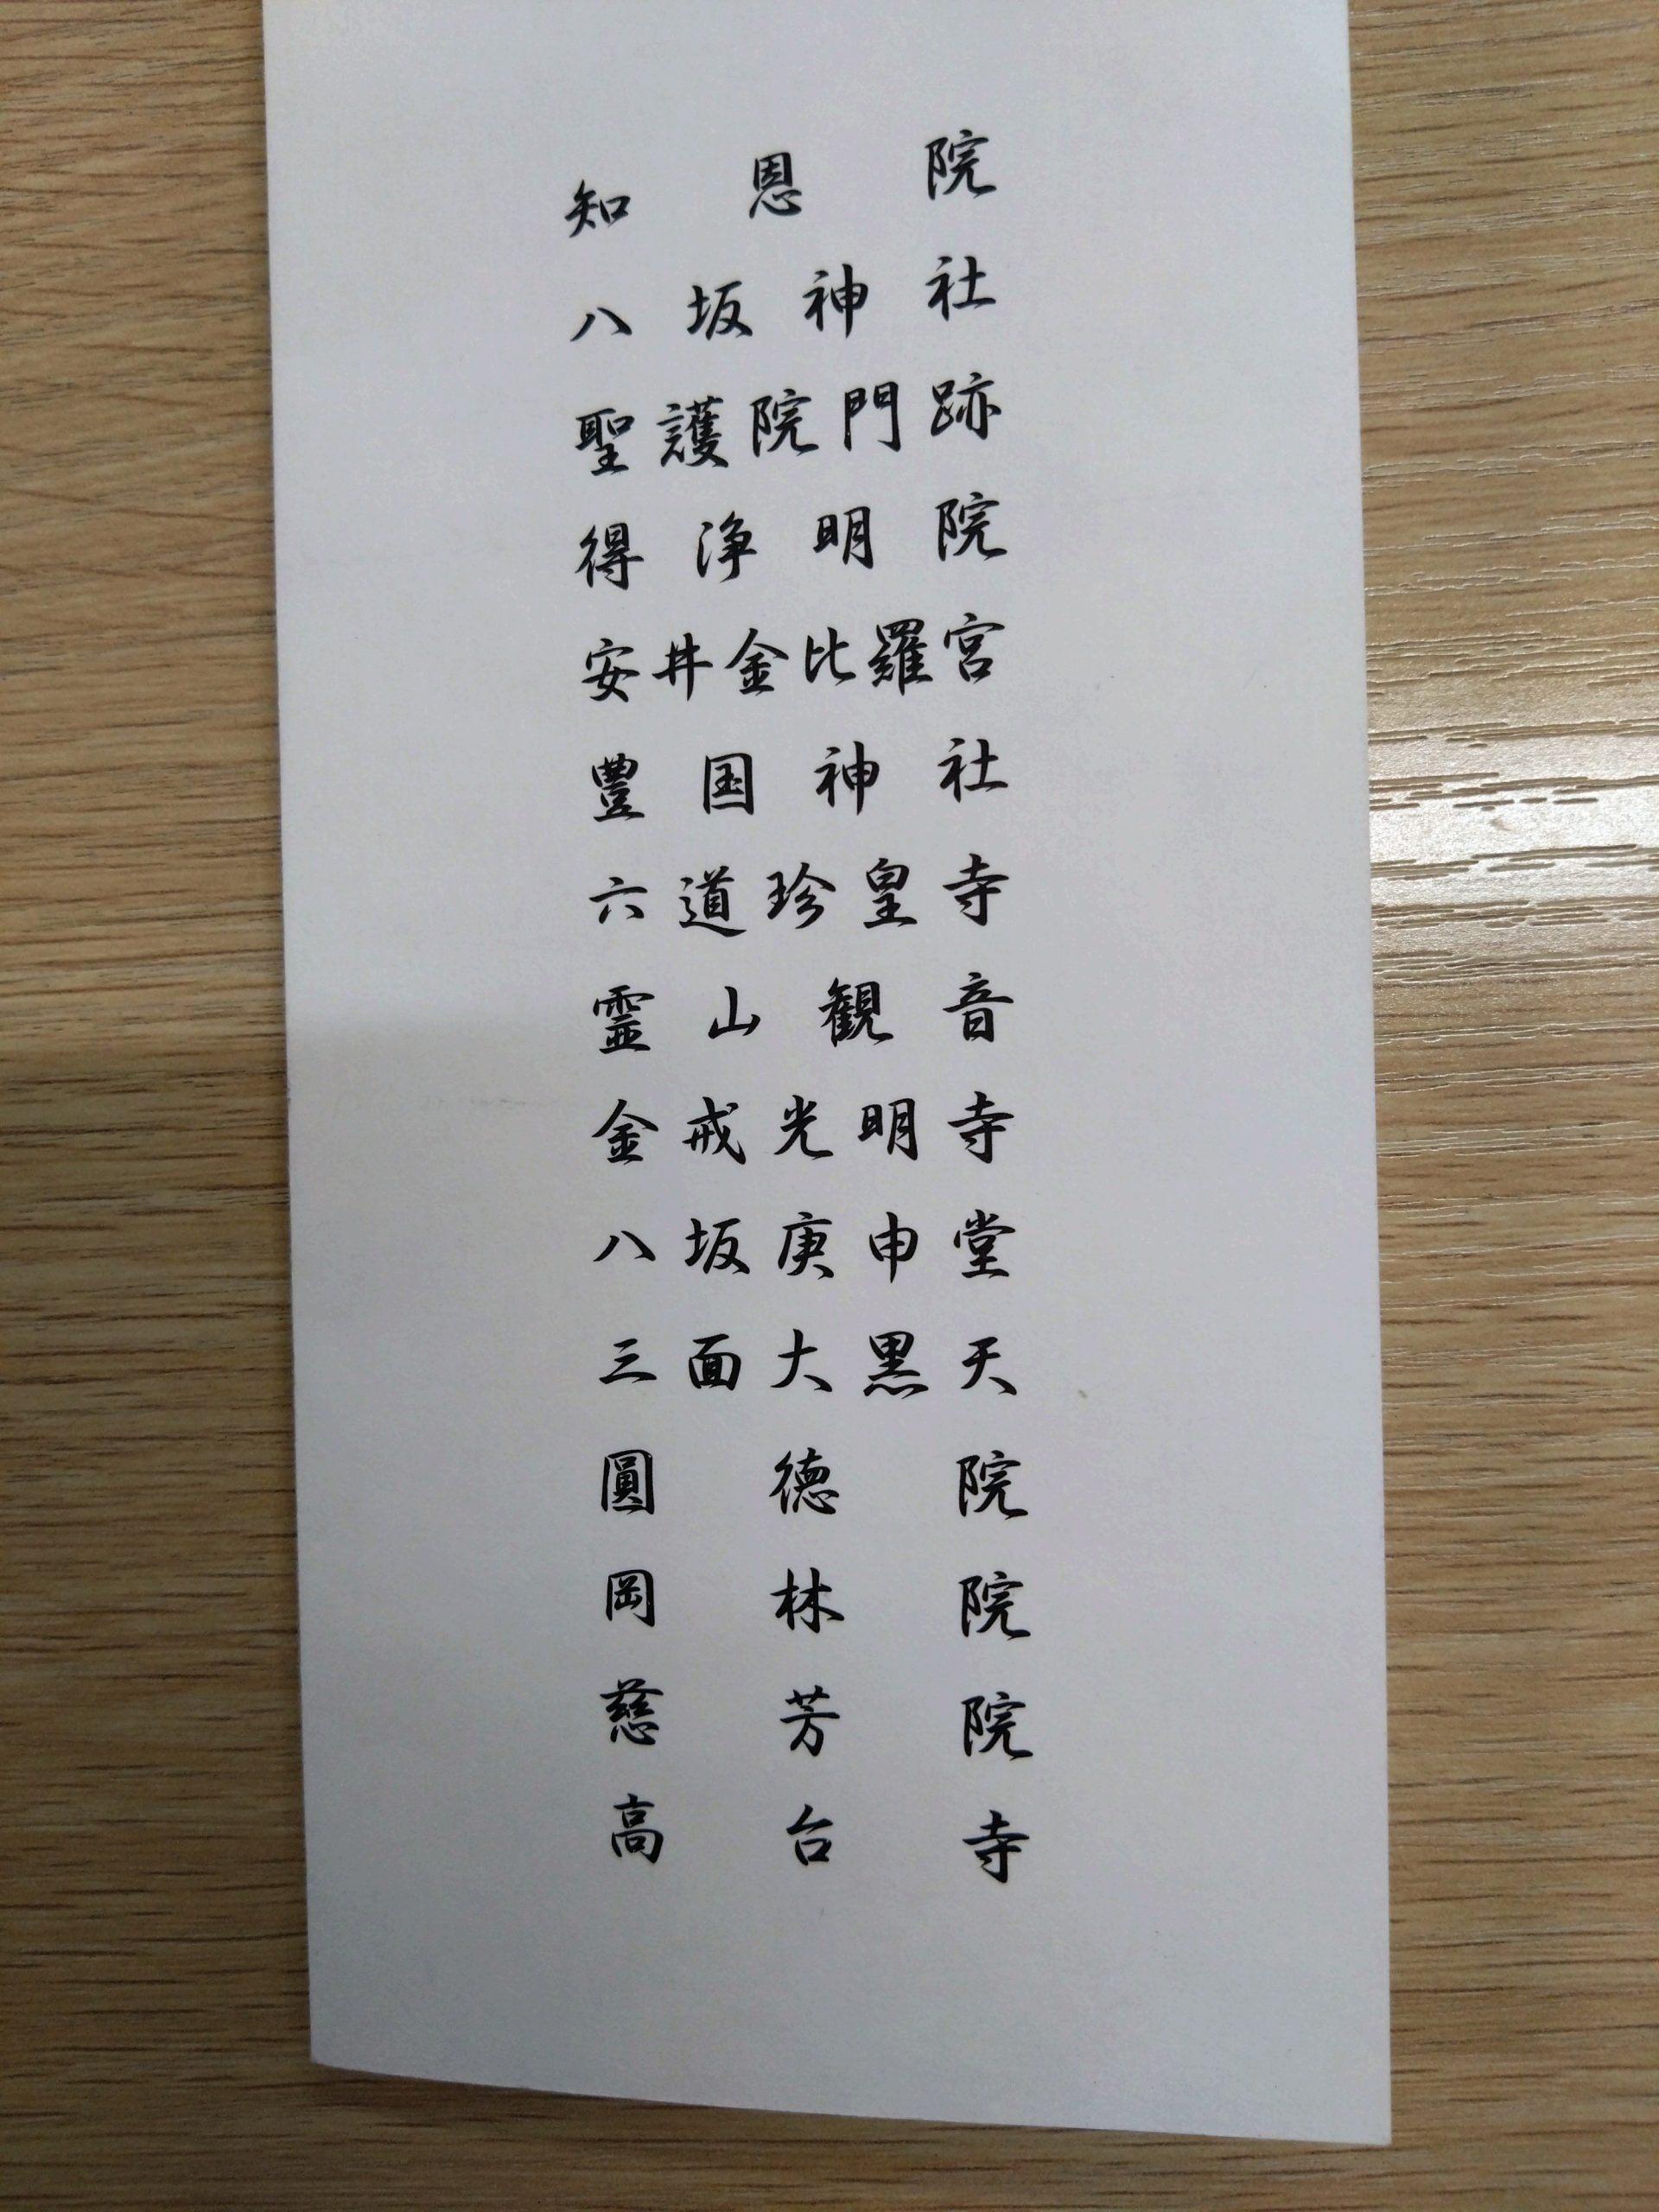 知恩院
八坂神社
聖護院門跡
得浄明院
安井金比羅宮
豊国神社
六道珍皇寺
霊山観音
金戒光明寺
八坂庚申堂
三面大黒天
圓徳院
岡林院
慈芳院
高台寺